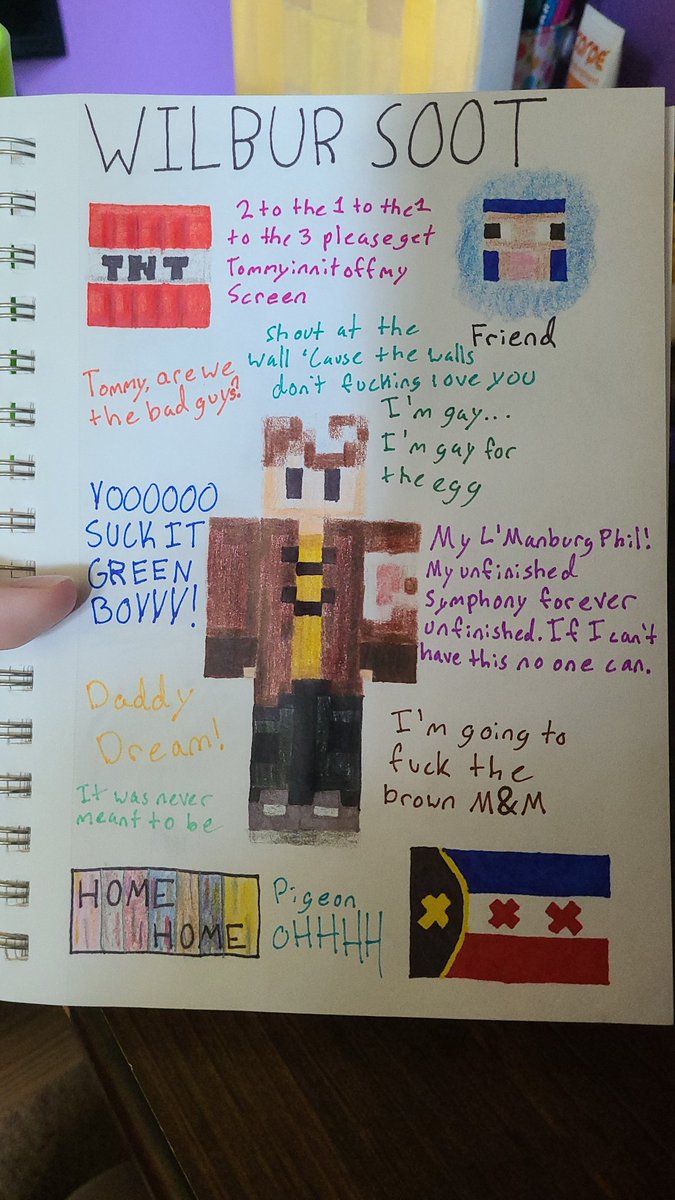 WILBUR SOOT
TNT
2 to the 1 to the 1
to the 3 please get
Tommyinnit off my
Screen
Friend
shout at the
wall 'Cause the walls
don't fucking love you
Tommy, are we
the bad guys?
I'm gay...
I'm gay for
the egg
YOOOOOO
SUCK IT
GREEN
BOYYY!
My L'Manburg Phil!
My unfinished
Symphony forever
unfinished. If I can't
have this no one can.
Daddy
Dream!
I'm going to
fuck the
brown M&M
It was never
meant to be
HOME
HOME
Pigeon
OHHHH